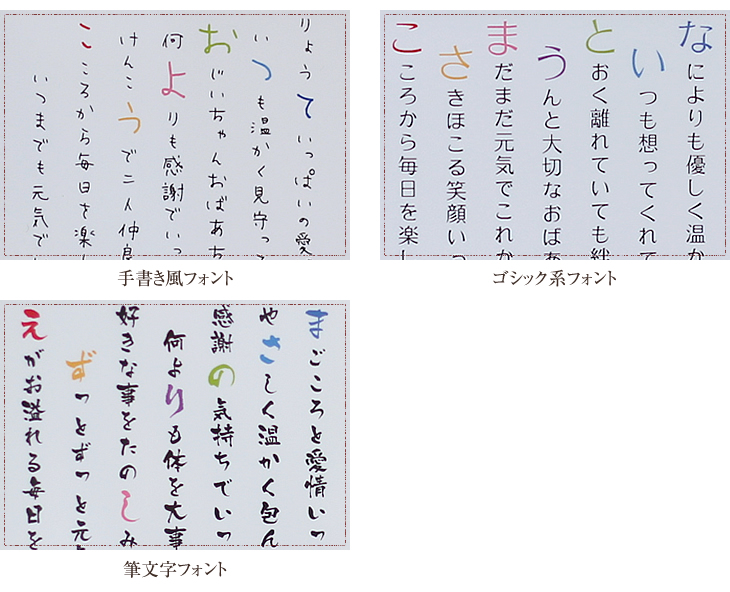 りょうていっぱいの愛
いつも温かく見守って
おじいちゃんおばあち
何よりも感謝でいっ
けんこうで二人仲良
こころから毎日を楽し
いつまでも元気でし
手書き風フォント
なによりも優しく温か
いつも想ってくれて
とおく離れていても絆
うんと大切なおばあ
まだまだ元気でこれか
さきほこる笑顔いっ
こころから毎日を楽し
ゴシック系フォント
まごころと愛情いっ
やさしく温かく包ん
感謝の気持ちでいっ
何よりも体を大事
好きな事をたのしみ
ずっとずっと元
えがお溢れる毎日を
筆文字フォント